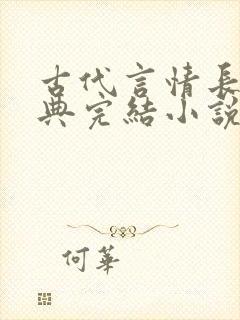 古代言情長
典完結小說
何華